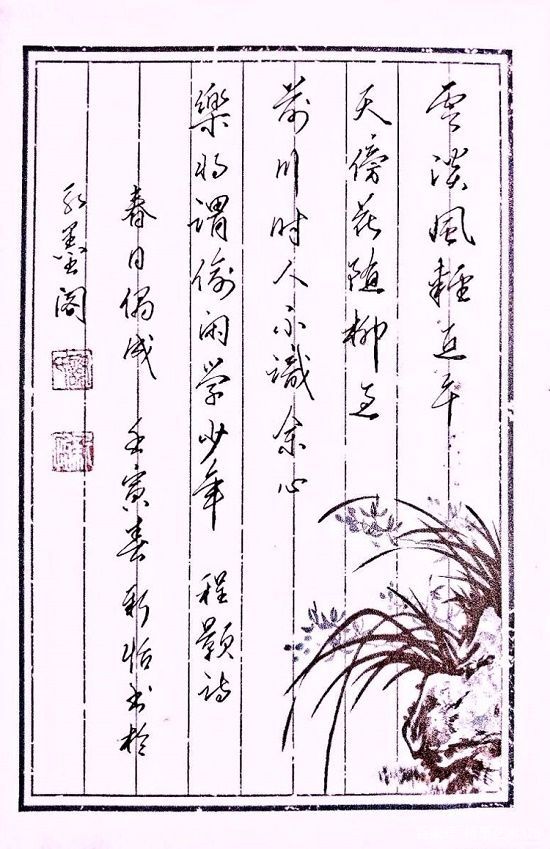 雲淡風輕近午
天傍花随柳过
前川时人不識余心
樂将謂偷闲学少年 程颢诗
春日偶成 壬寅春书於
墨阁